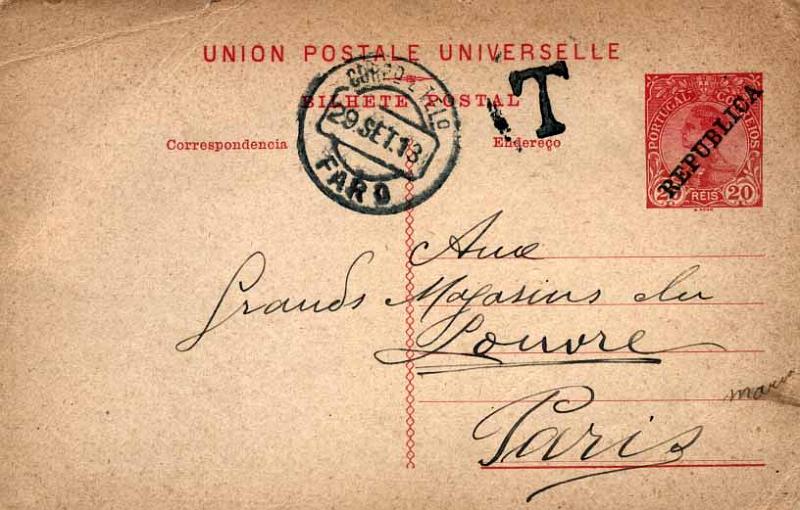 UNION POSTALE UNIVERSELLE
BILHETE POSTAL
Correspondencia
Endereço
29.SET.13
FARO
T
PORTUGAL CORREIOS
REPUBLICA
20 REIS 20
Aux
Grands Magasins du
Louvre
Paris